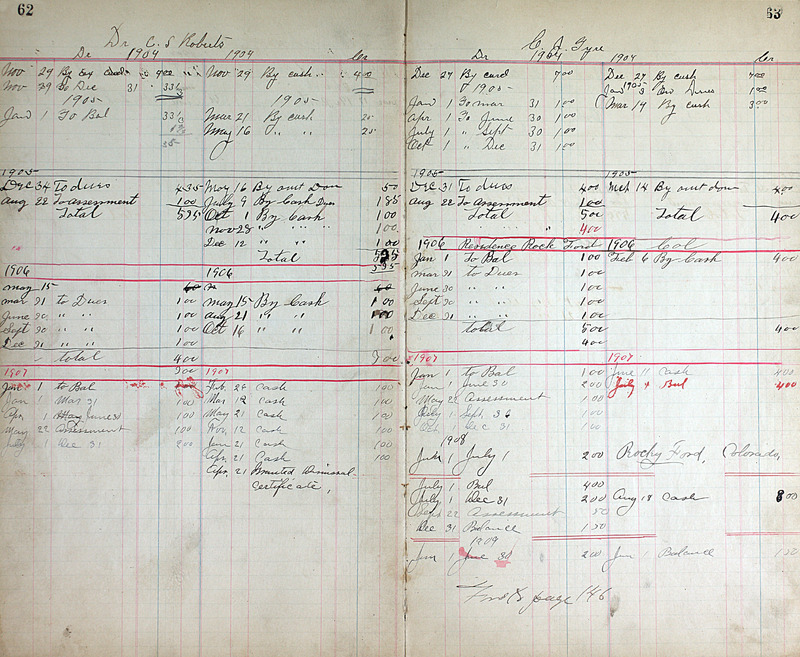 62
Dr. C. S Roberts
Dr 1904 1904 Cr
Nov 29 By 900 Nov 29 By cash 400
Nov 29 To Dec 31 33⅓
1905 1905
Jan 1 To Bal 33⅓ Mar 21 By cash 20
May 16 " " 20
35
1905
Dec 31 To dues 435 May 16 By amt Don 50
Aug 22 To assessment 100 July 9 By Cash Dues 185
Total 535 Oct 1 By Cash 100
Nov 28 " " 100
Dec 12 " " 100
Total 535
1906 1906 535
may 15
mar 31 to Dues 100 may 15 By Cash 100
June 30 " " 100 aug 21 " " 100
Sept 30 " " 100 Oct 16 " " 100
Dec 31 " " 100
total 400 300
1907 300 1907
Jan 1 to Bal Feb 26 Cash 100
Jan 1 Mar 31 100 Mar 12 Cash 100
Apr 1 June 31 100 May 21 Cash 100
May 22 Assessment 100 Nov 12 Cash 100
July 1 Dec 31 200 Jan 21 Cash 100
Apr. 21 Cash 100
Apr. 21 Granted Dismissal
certificate.
63
C. A. Tyre
Dr 1904 1904 Cr
Dec 27 By card 700 Dec 27 By cash 700
1905 Jan 1905 3 Dues 100
Jan 1 To mar 31 100 Mar 14 By cash 300
Apr 1 To June 30 100
July 1 " Sept 30 100
Oct 1 " Dec 31 100
1905 1905
Dec 31 To dues 400 Mch 14 By amt down 400
Aug 22 To assessment 100
Total 500 Total 400
400
1906 Residence Rock Ford 1906 Col
Jan 1 To Bal 100 Feb 6 By Cash 400
mar 31 to Dues 100
June 30 " " 100
Sept 30 " " 100
Dec 31 " " 100
total 500 400
400
1907 1907
Jan 1 to Bal 100 June 11 Cash 400
Jan 1 June 30 200 July 4 Bal 400
May 22 Assessment 100
July 1 Sept. 30 100
Oct. 1 Dec 31 100
1908
Jan 1 July 1 200 Rocky Ford, Colorado,
July 1 Bal 400
July 1 Dec 31 200 Aug 18 Cash 800
Sept 22 Assessment 50
Dec 31 Balance 150
1909
Jan 1 June 30 200 Jan 1 Balance 150
page 146